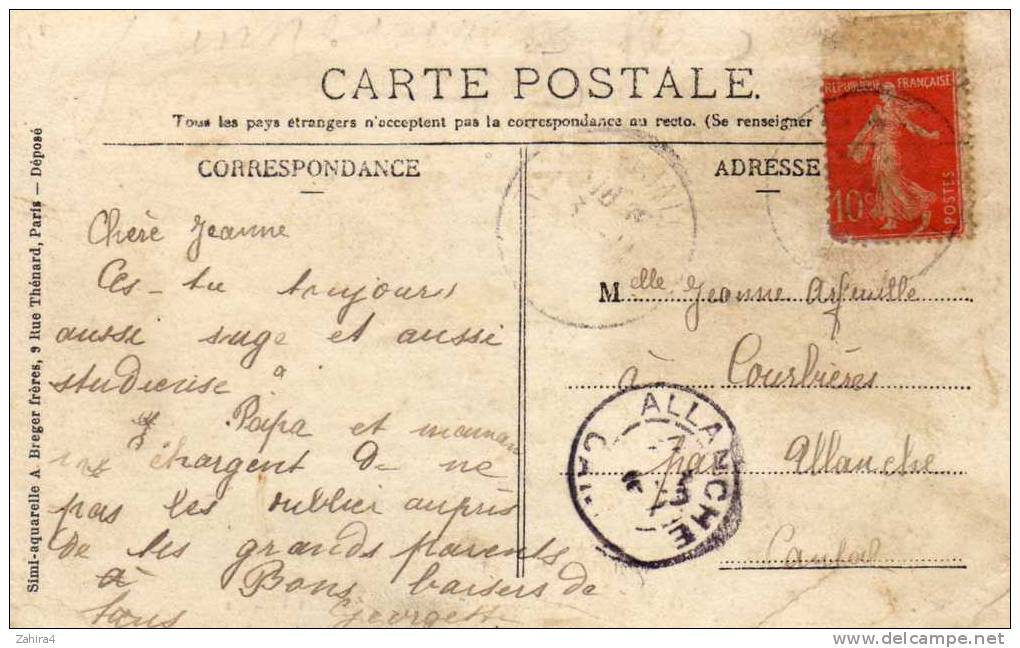 CARTE POSTALE.
Tous les pays étrangers n'acceptent pas la correspondance au recto. (Se renseigner
CORRESPONDANCE
ADRESSE
RÉPUBLIQUE FRANÇAISE
10c
POSTES
Simi-aquarelle A Breger frères, 9 Rue Thénard, Paris — Déposé
Chère Jeanne
Es-tu toujours
aussi sage et aussi
studieuse
Papa et maman
chargent de ne
pas les oublier auprès
de tes grands parents
Bons baisers de
tous Georgette
Melle Jeanne Arfeuille
à Courbières
par Allanche
Cantal
ALLANCHE
Zahira4
www.delcampe.net